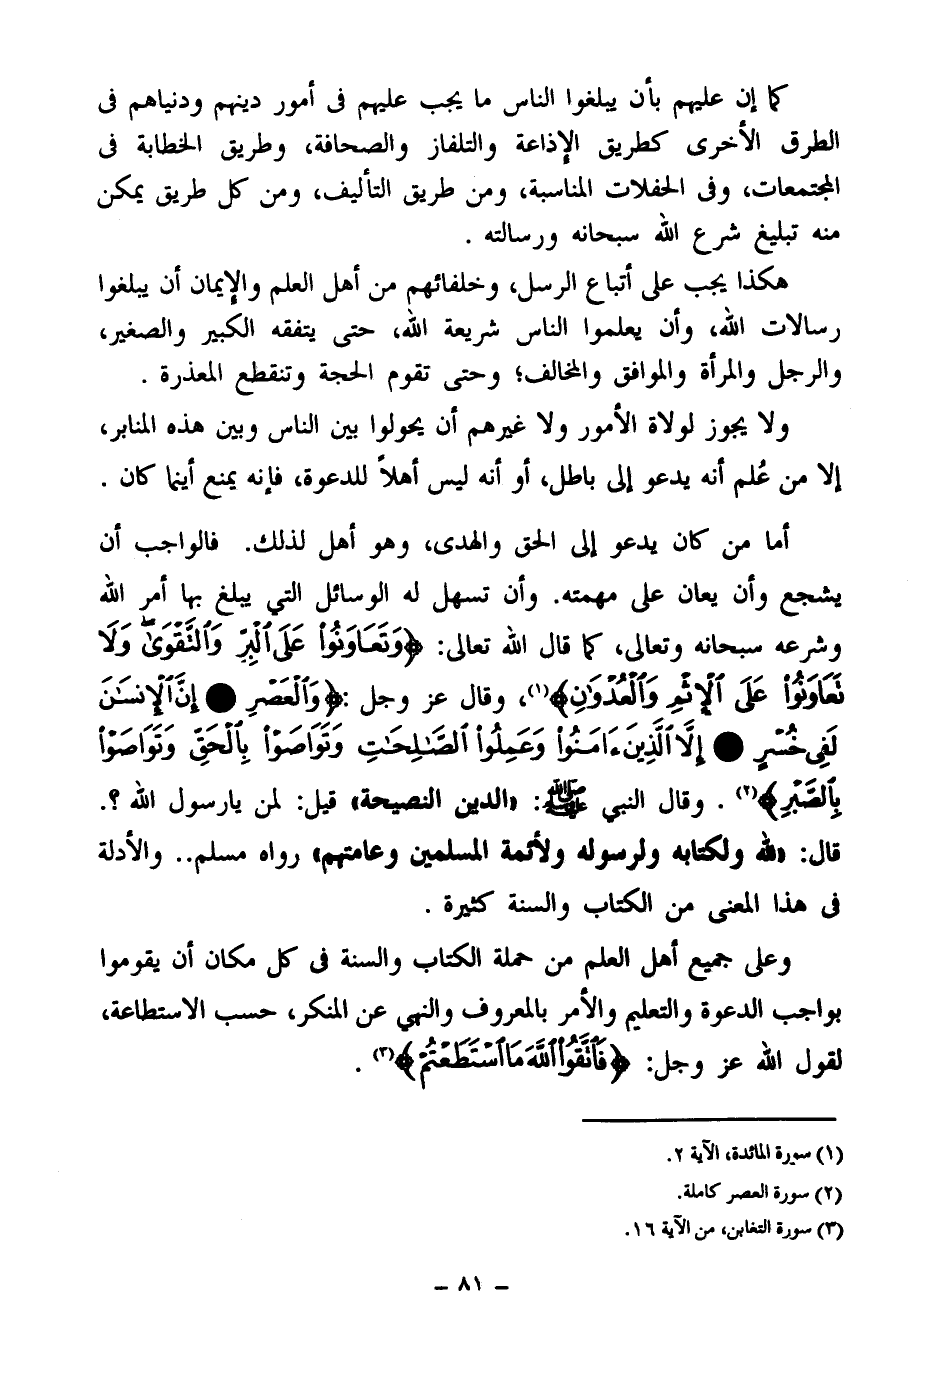 كما إن عليهم بأن يبلغوا الناس ما يجب عليهم فى أمور دينهم ودنياهم فى
الطرق الأخرى كطريق الإذاعة والتلفاز والصحافة، وطريق الخطابة فى
المجتمعات، وفى الحفلات المناسبة، ومن طريق التأليف، ومن كل طريق يمكن
منه تبليغ شرع الله سبحانه ورسالته .
هكذا يجب على أتباع الرسل، وخلفائهم من أهل العلم والإيمان أن يبلغوا
رسالات الله، وأن يعلموا الناس شريعة الله، حتى يتفقه الكبير والصغير،
والرجل والمرأة والموافق والمخالف؛ وحتى تقوم الحجة وتنقطع المعذرة .
ولا يجوز لولاة الأمور ولا غيرهم أن يحولوا بين الناس وبين هذه المنابر،
إلا من عُلم أنه يدعو إلى باطل، أو أنه ليس أهلاً للدعوة، فإنه يمنع أينما كان .
أما من كان يدعو إلى الحق والهدى، وهو أهل لذلك. فالواجب أن
يشجع وأن يعان على مهمته. وأن تسهل له الوسائل التي يبلغ بها أمر الله
وشرعه سبحانه وتعالى، كما قال الله تعالى: ﴿وَتَعَاوَنُوا۟ عَلَى ٱلْبِرِّ وَٱلتَّقْوَىٰ ۖ وَلَا
تَعَاوَنُوا۟ عَلَى ٱلْإِثْمِ وَٱلْعُدْوَٰنِ﴾(١)، وقال عز وجل :﴿وَٱلْعَصْرِ ● إِنَّ ٱلْإِنسَٰنَ
لَفِى خُسْرٍ ● إِلَّا ٱلَّذِينَ ءَامَنُوا۟ وَعَمِلُوا۟ ٱلصَّٰلِحَٰتِ وَتَوَاصَوْا۟ بِٱلْحَقِّ وَتَوَاصَوْا۟
بِٱلصَّبْرِ﴾(٢) . وقال النبي ﷺ: «الدين النصيحة» قيل: لمن يارسول الله ؟.
قال: «لله ولكتابه ولرسوله ولأئمة المسلمين وعامتهم» رواه مسلم.. والأدلة
فى هذا المعنى من الكتاب والسنة كثيرة .
وعلى جميع أهل العلم من حملة الكتاب والسنة فى كل مكان أن يقوموا
بواجب الدعوة والتعليم والأمر بالمعروف والنهي عن المنكر، حسب الاستطاعة،
لقول الله عز وجل: ﴿فَٱتَّقُوا۟ ٱللَّهَ مَا ٱسْتَطَعْتُمْ﴾(٣) .
(١) سورة المائدة، الآية ٢.
(٢) سورة العصر كاملة.
(٣) سورة التغابن، من الآية ١٦.
– ٨١ –